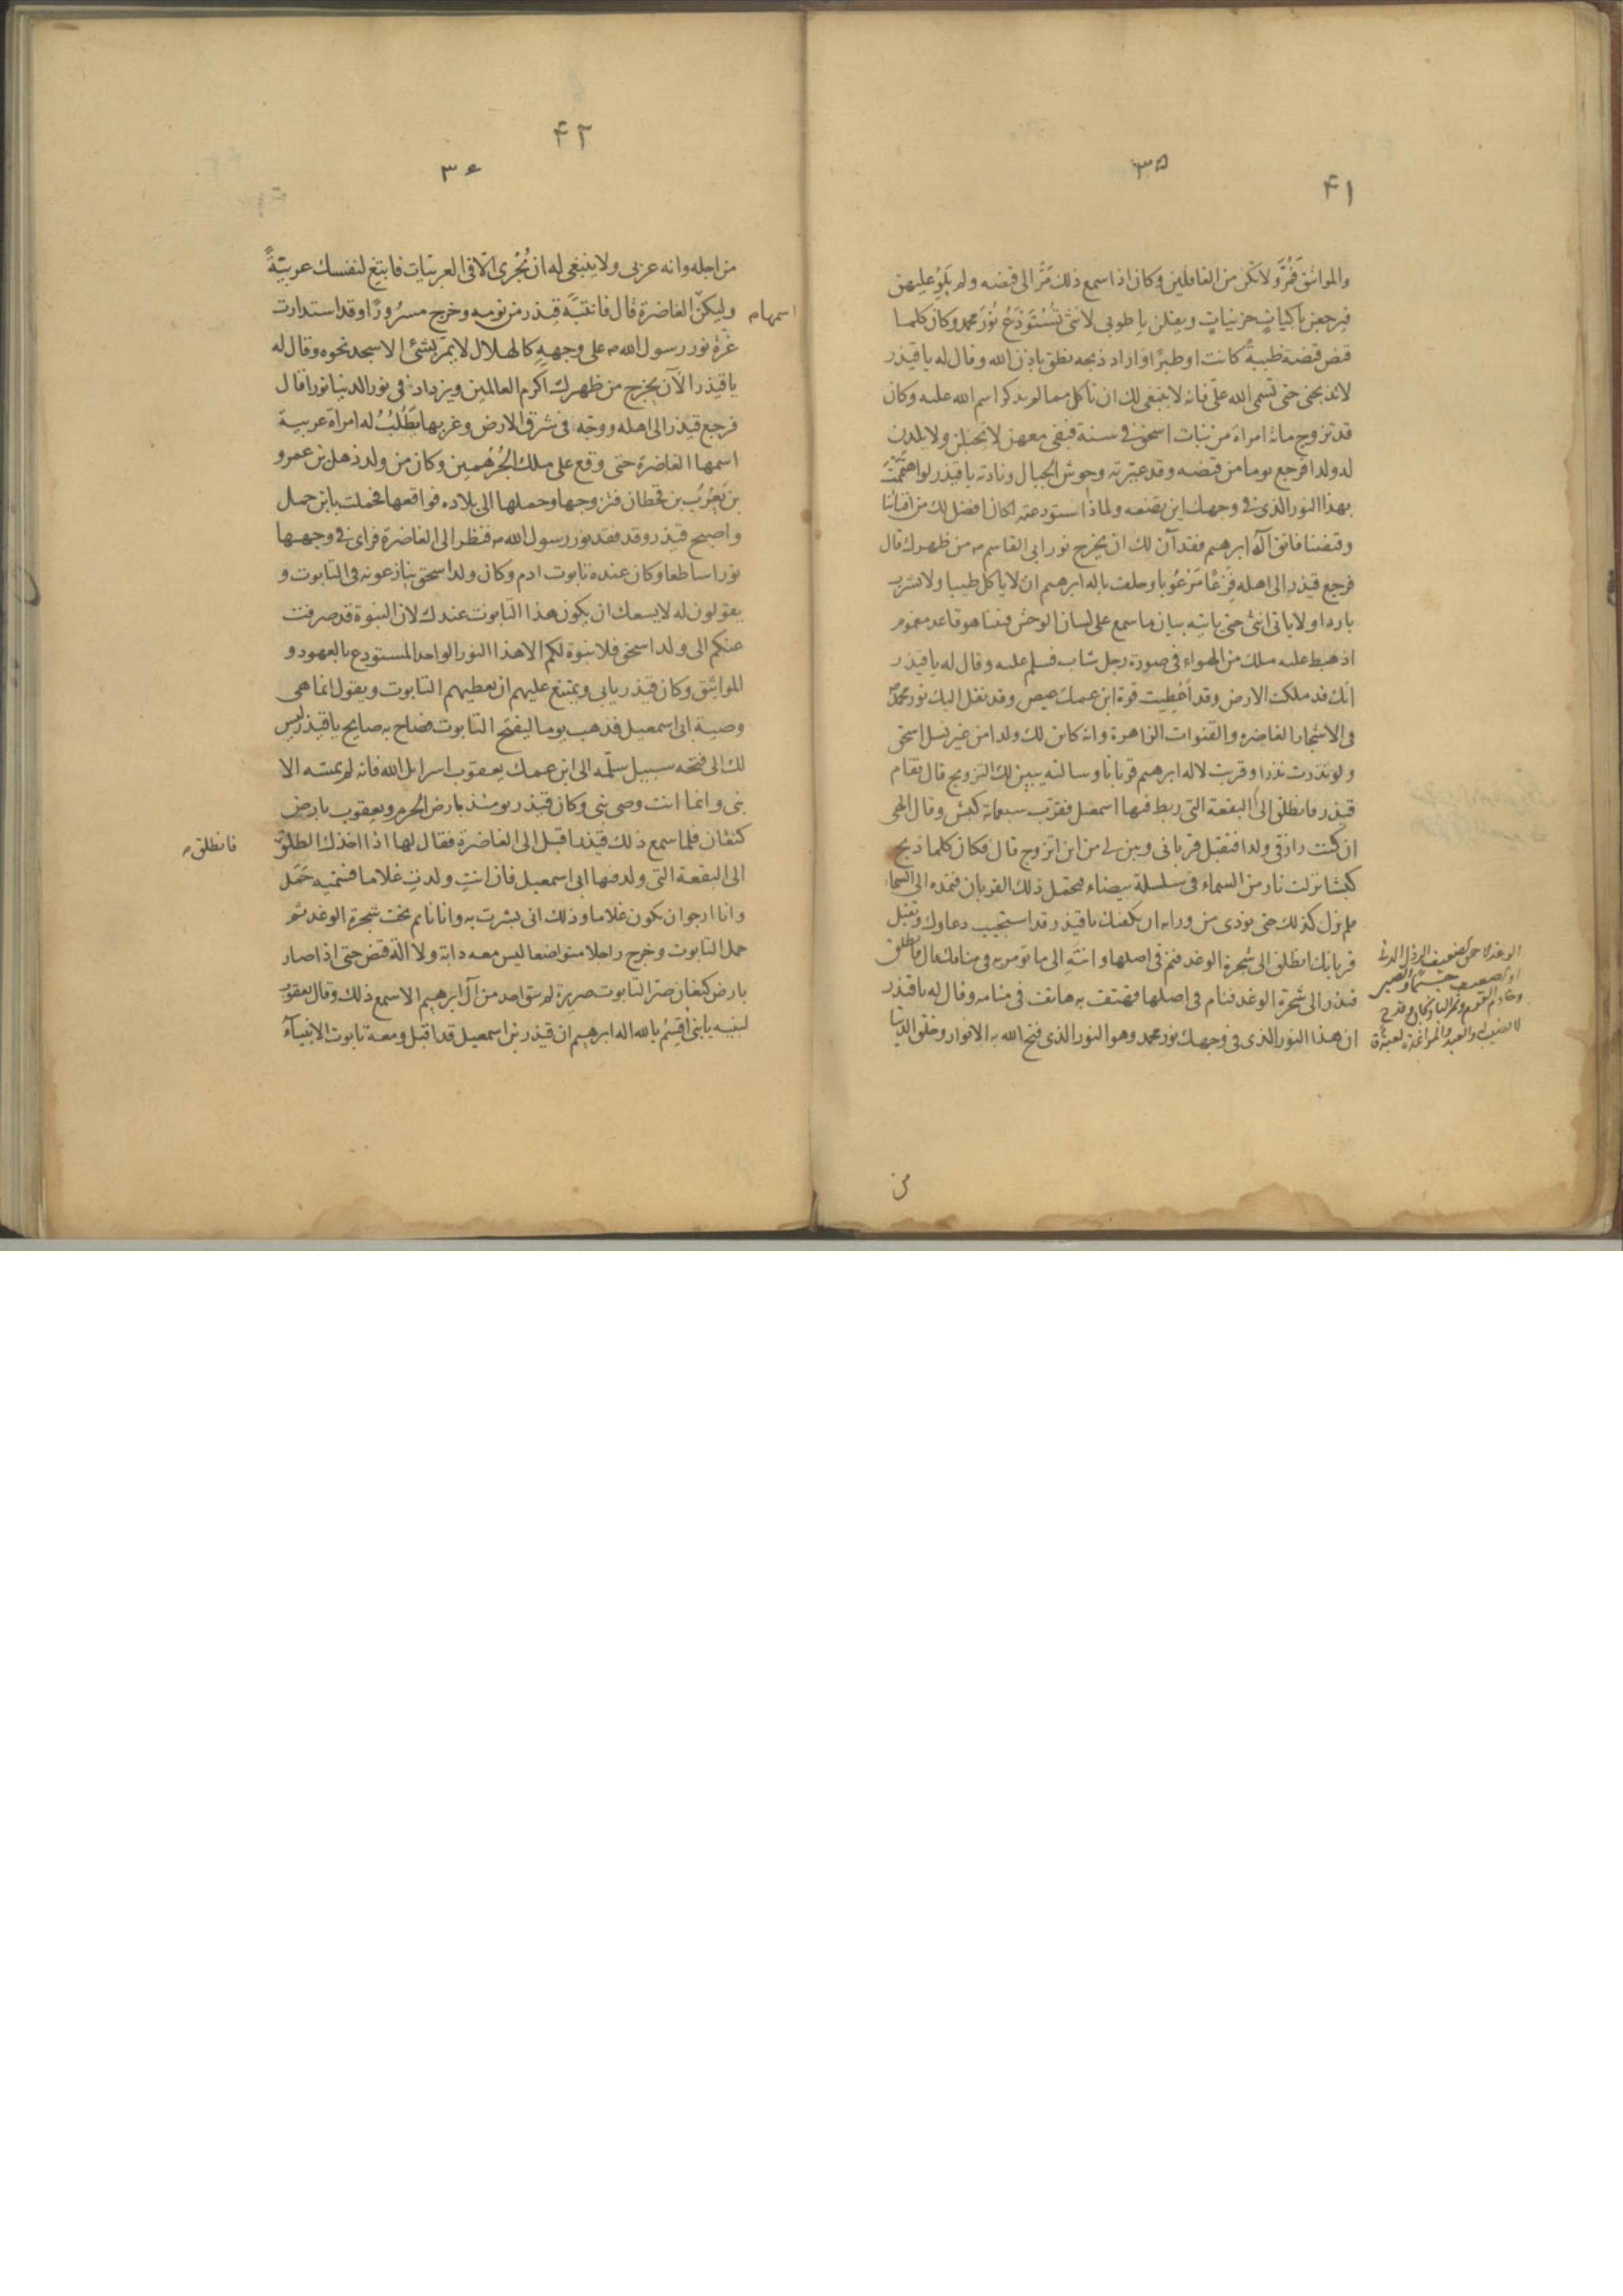 ۳۵
۴۱
والمواثيق فمُرَّ ولا تكن من الغافلين وكان اذا سمع ذلك مَرَّ الى قنصه ولم يَلْوِ عليهن
فيرجعن باكياتٍ حزيناتٍ ويقلن يا طوبى لانثى تُسْتَودَعُ نُورَ محمد وكان كلما
قنص قنصة ظبيةً كانت او طيرًا او اراد ذبحه نطق باذن الله وقال له يا قيذر
لا تذبحنى حتى تسمى الله علىّ فانه لا ينبغى لك ان تأكل مما لم يذكر اسم الله عليه وكان
قد تزوج مائة امراة من بنات اسحق فى سنة فبقى معهن لا تحبلن ولا يلدن
له ولدا فرجع يوما من قنصه وقد عيّرته وحوش الجبال ونادته يا قيذر لو اهتممتَ
بهذا النور الذى فى وجهك اين تضعه ولماذا استودعته لكان افضل لك من افنائنا
وقنصنا فاتق آله ابرهيم فقد آن لك ان يخرج نور ابى القاسم من ظهرك قال
فرجع قيذر الى اهله فَزِعًا مَرْعُوبا وحلف باله ابرهيم ان لا ياكل طيبا ولا يشرب
باردا ولا ياتى انثى حتى ياتيه بيان ما سمع على لسان الوحش فبينا هو قاعد مغموم
اذ هبط عليه ملك من الهواء فى صورة رجل شاب فسلم عليه وقال له يا قيذر
انك قد ملكت الارض وقد اُعْطِيت قوة ابن عمك عيص وقد نقل اليك نور محمد
فى الاشجار الغاضره والقنوات الزاهرة وانه كائن لك ولدا من غير نسل اسحق
ولو نذرت نذرا وقربت لاله ابرهيم قربانا وسالته يبين لك التزويج قال فقام
قيذر فانطلق الى البقعة التى ربط فيها اسمعيل فقرّب سبعمائة كبش وقال الهى
ان كنت رازقى ولدا فتقبل قربانى وبين لى من اين اتزوج قال فكان كلما ذبح
كبشا نزلت نار من السماء فى سلسلة بيضاء فتحمل ذلك القربان فتمده الى السماء
فلم يزل كذلك حتى نودى من ورائه ان يكفيك يا قيذر قد استجيب دعاوك وتقبل
قربانك انطلق الى شجرة الوغد فنم فى اصلها وانتَهِ الى ما تومر به فى منامك قال فانطلق
قيذر الى شجرة الوغد فنام فى اصلها فهتف به هاتف فى منامه وقال له يا قيذر
ان هذا النور الذى فى وجهك نور محمد وهو النور الذى فتح الله به الانوار وخلق الدنيا
الوغد الاحمق الضعيف الرذل الدنى
او الضعيف جسما والصبى
وخادم القوم
من
۴۲
۳۶
من اجله وانه عربى ولا ينبغى له ان يُجْرى الّا فى العربيات فابتغ لنفسك عربيّةً
وليكن اسمها الغاضرة قال فانتبَهَ قيذر من نومه وخرج مسرُورًا وقد استدارت
غرة نور رسول الله على وجههِ كالهلال لا يمرّ بشئ الا سجد نحوه وقال له
يا قيذر الآن يخرج من ظهرك اكرم العالمين ويزداد فى نور الدنيا نورا قال
فرجع قيذر الى اهله ووجّه فى شرق الارض وغربها يَطْلُبُ له امراة عربية
اسمها الغاضرة حتى وقع على ملك الجُرْهُمين وكان من ولد ذهل بن عمرو
بن يَعْرُبُ بن قحطان فتزوجها وحملها الى بلاده فواقعها فحملت بابن حمل
واصبح قيذر وقد فقد نور رسول الله فنظر الى الغاضرة فراى فى وجهها
نورا ساطعا وكان عنده تابوت ادم وكان ولد اسحق ينازعونه فى التابوت و
يقولون له لا يسعك ان يكون هذا التابوت عندك لان النبوة قد صرفت
عنكم الى ولد اسحق فلا نبوة لكم الا هذا النور الواحد المستودع بالعهود و
المواثيق وكان قيذر يابى ويمتنع عليهم ان يعطيهم التابوت ويقول انما هى
وصية ابى اسمعيل فذهب يوما ليفتح التابوت فصاح به صايح يا قيذر ليس
لك الى فتحه سبيل سلّمه الى ابن عمك يعقوب اسرايل الله فانه لم يمسّه الا
نبى وانما انت وصى نبى وكان قيذر يومئذ بارض الحرم ويعقوب بارض
كنعان فلما سمع ذلك قيذر اقبل الى الغاضرة فقال لها اذا اخذك الطلق
فانطلقى
الى البقعة التى ولد فيها ابى اسمعيل فان انتِ ولدتِ غلاما فسمّيه حَمَل
وانا ارجوا ان يكون غلاما وذلك انى بشرت به وانا نايم تحت شجرة الوغد ثم
حمل التابوت وخرج راجلا متواضعا ليس معه دابة ولا الة قنص حتى اذا صار
بارض كنعان صرّ التابوت صريرة لم يبق احد من آل ابرهيم الا سمع ذلك وقال يعقوب
لبنيه يا بنىّ اُقْسِمُ بالله اله ابرهيم ان قيذر بن اسمعيل قد اقبل ومعه تابوت الانبياء